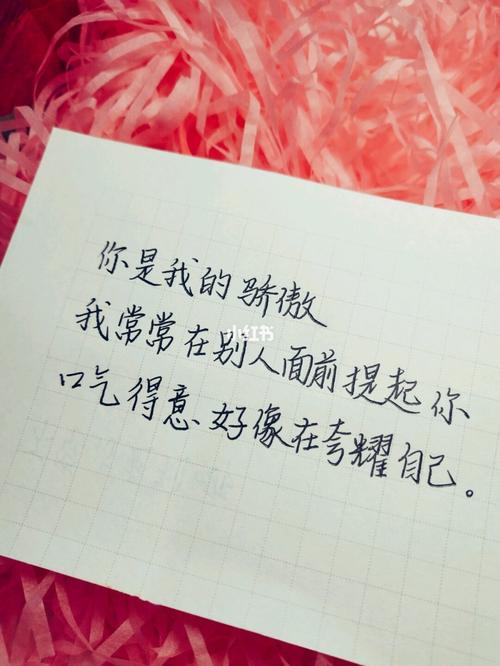 你是我的骄傲
我常常在别人面前提起你
口气得意、好像在夸耀自己。
小红书